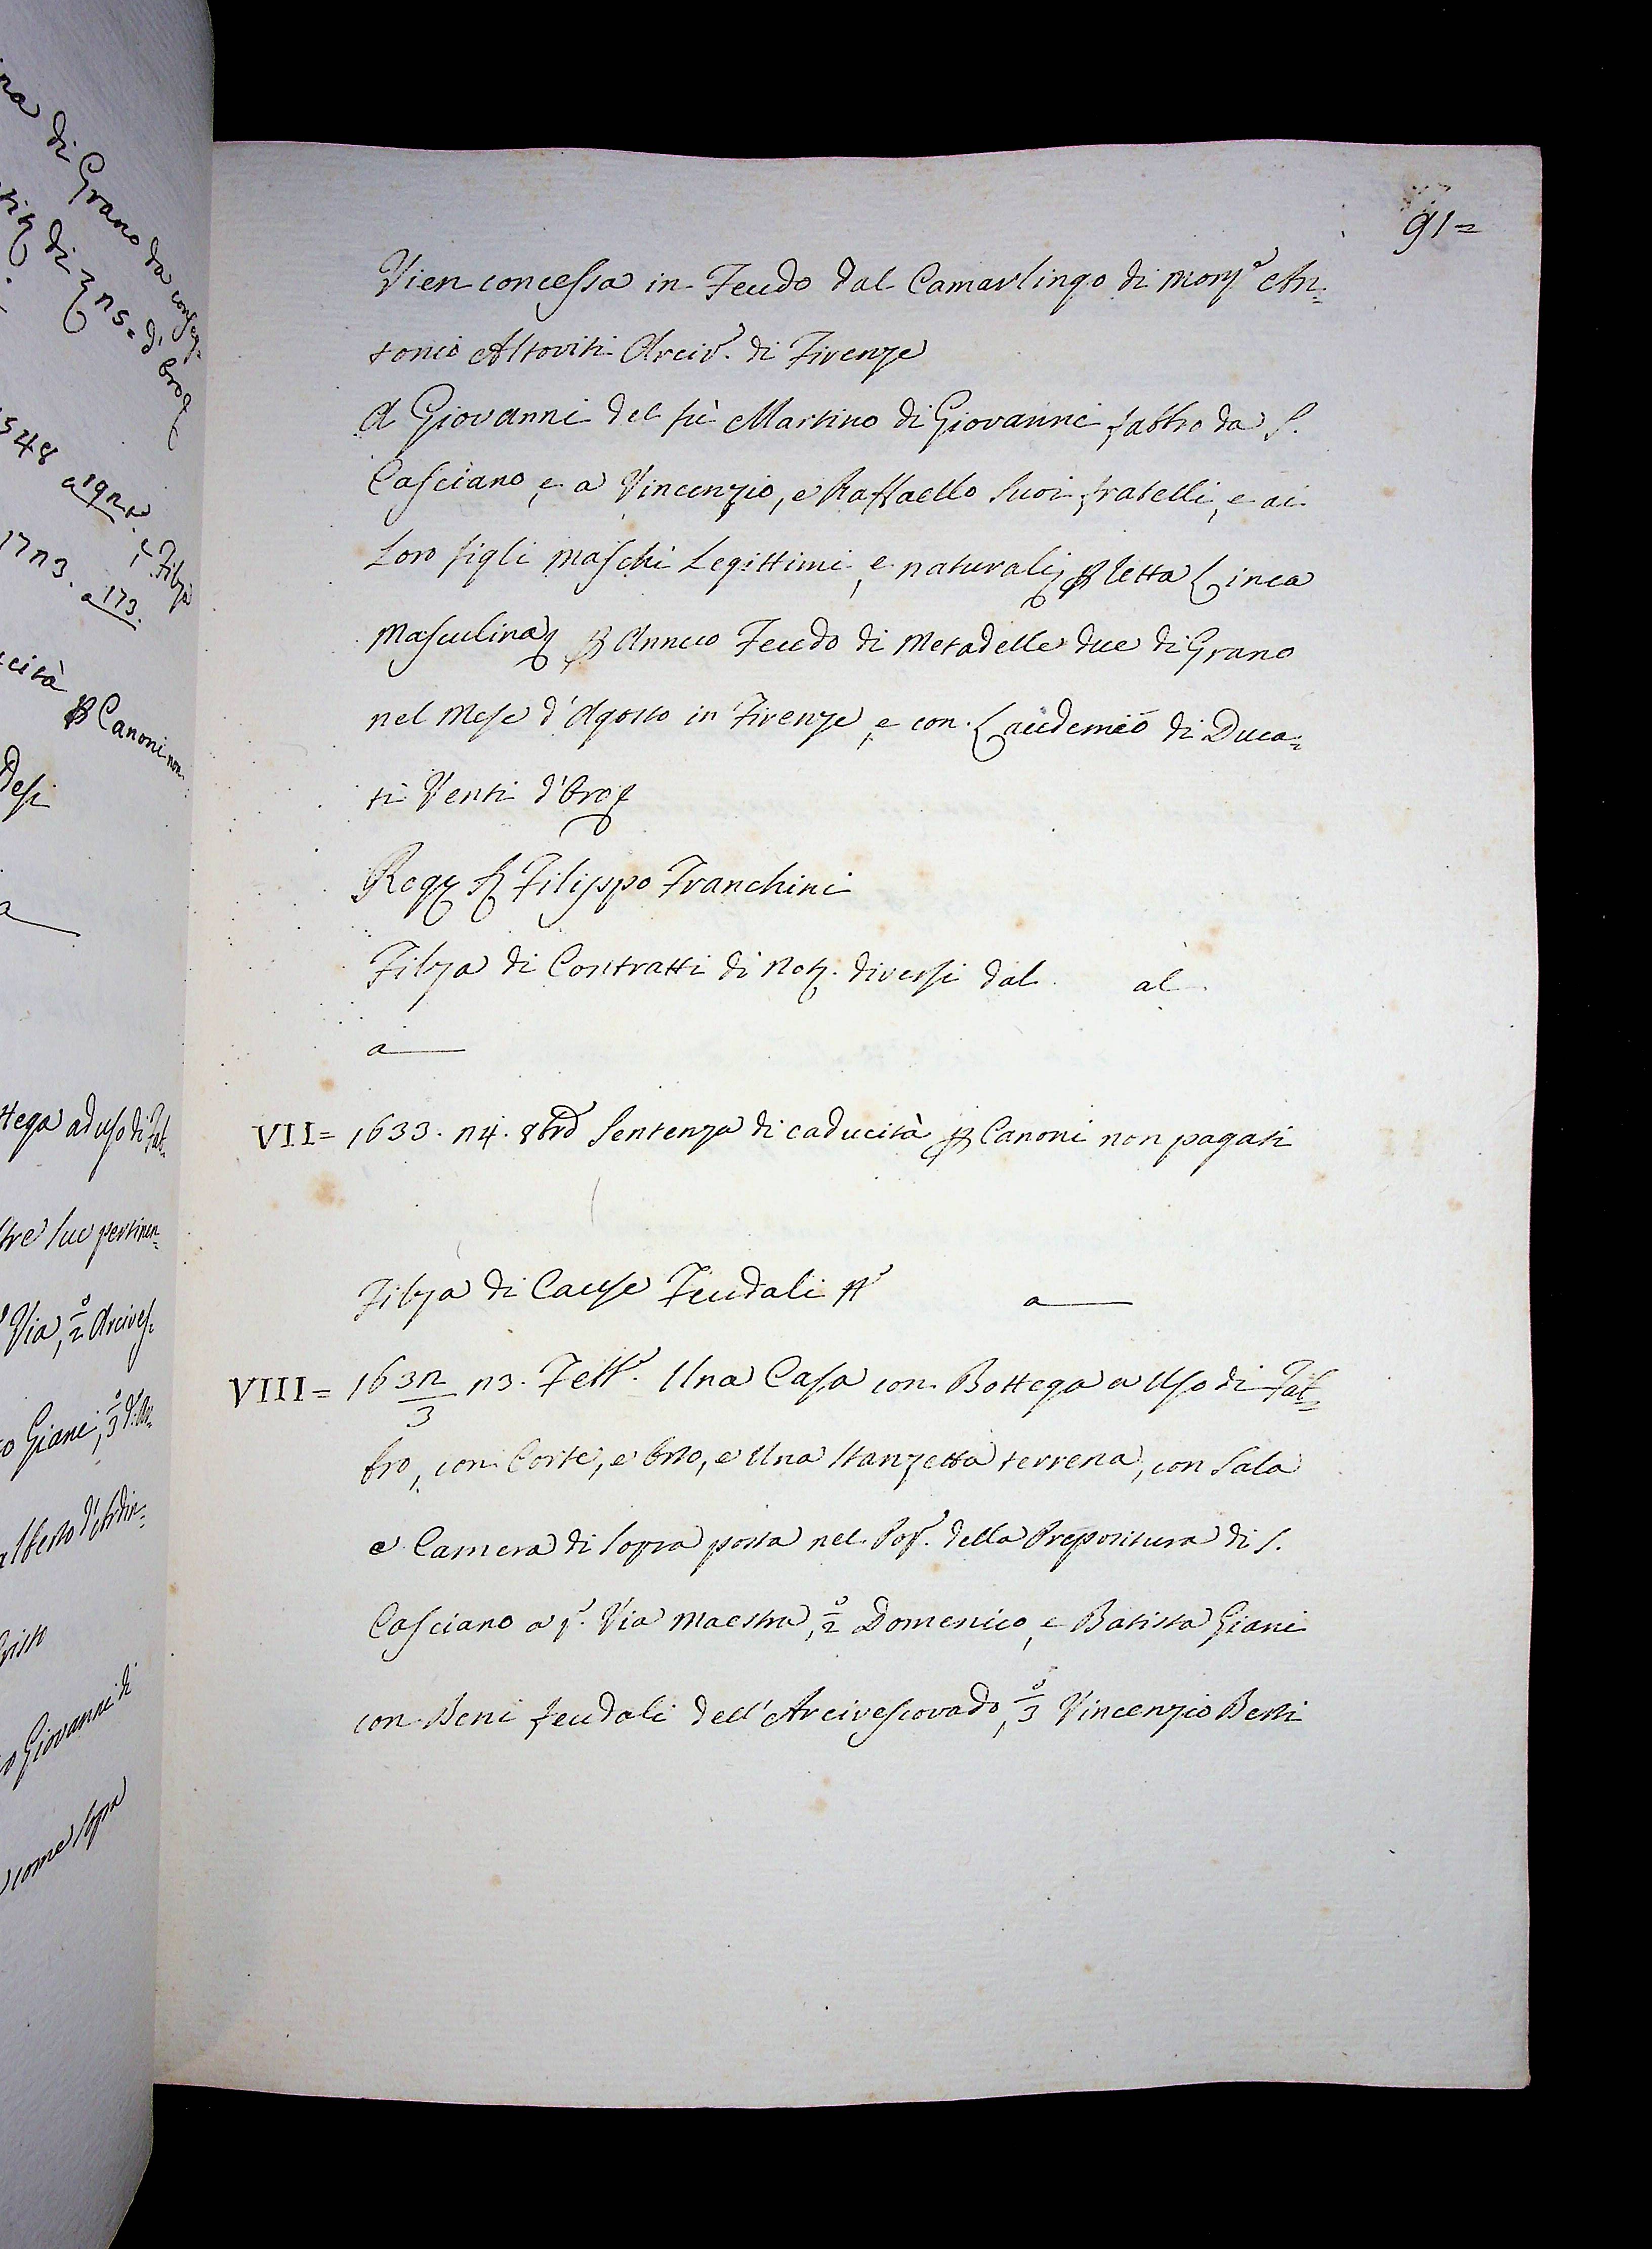 91=
Vien concessa in Feudo dal Camarlingo di Mons.e An=
tonio Altoviti Arciv.e di Firenze
A Giovanni del fù Martino di Giovanni fabbro da S.
Casciano, e a Vincenzio, e Raffaello suoi fratelli, e ai
Loro figli maschi Legittimi, e naturali p retta Linea
Masculina p Annuo Feudo di Metadelle due di Grano
nel Mese d'Agosto in Firenze, e con Laudemio di Duca=
ti Venti d'Oro
Rog. S. Filippo Franchini
Filza di Contratti di Not. diversi dal al
a
VII= 1633. 24. 8bre Sentenza di caducità p Canoni non pagati
Filza di Cause Feudali N.o a
VIII= 1632/3 23. Febb.o Una Casa con Bottega a Uso di Fab=
bro, con Corte, e Orto, e Una stanzetta terrena, con Sala
e Camera di sopra posta nel Pop.o della Prepositura di S.
Casciano a p.o Via Maestra, 2.o Domenico, e Batista Giani
con Beni feudali dell'Arcivescovado, 3.o Vincenzio Berti
di Grano da
di
1548 a 192.
Filza
173.
cità p Canoni non
tega ad uso di Fab=
tre sue pertinen=
Via, 2.o Arcives=
Giani, 3.o
Giovanni di
come sopra